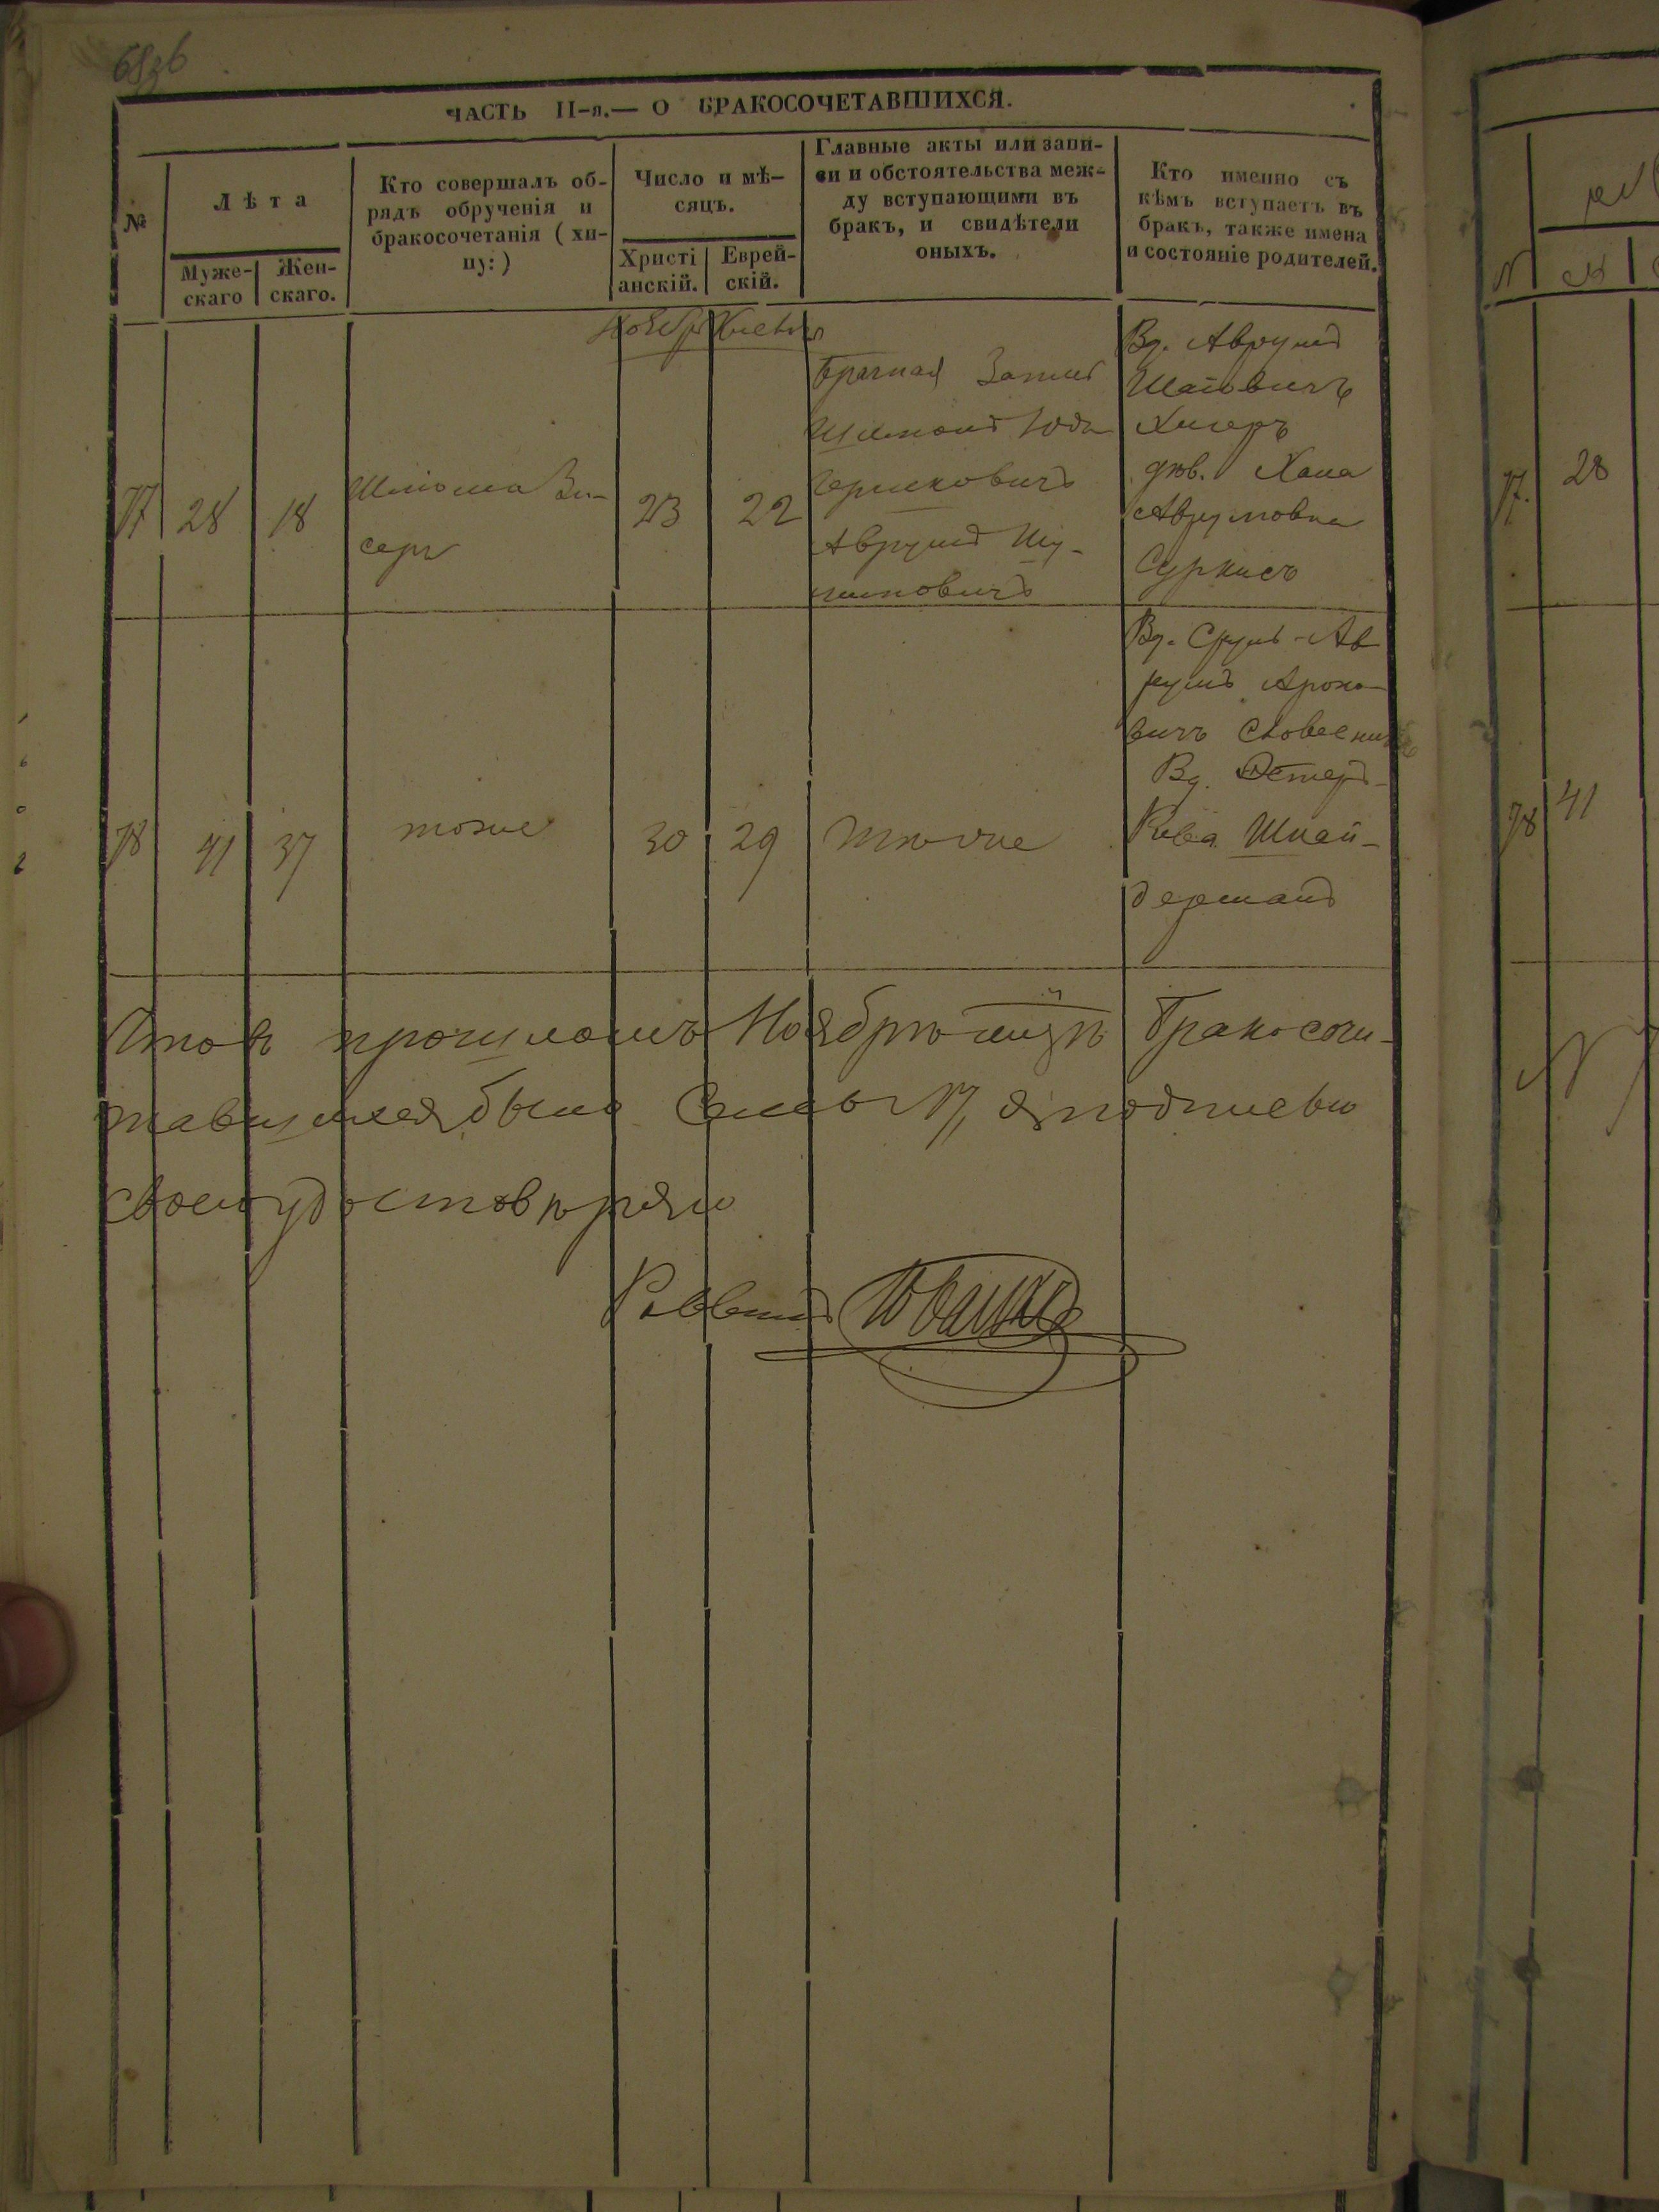 ЧАСТЬ II-я.— О БРАКОСОЧЕТАВШИХСЯ.
№
Лѣта
Муже-
скаго
Жен-
скаго.
Кто совершалъ об-
рядъ обрученія и
бракосочетанія ( хи-
пу: )
Число и мѣ-
сяцъ.
Христі
анскій.
Еврей-
скій.
Главные акты или запи-
си и обстоятельства меж-
ду вступающими въ
бракъ, и свидѣтели
оныхъ.
Кто именно съ
кѣмъ вступаетъ въ
бракъ, также имена
и состояніе родителей.
Ноябрь
77
28
18
Шлiома Зи-
серъ
23
22
Брачная Запись
Шимонъ Юда
Берковичъ
Аврумъ Шу-
лимовичъ
Вд. Аврумъ
Хигеръ
дѣв. Хана
Аврумовна
Суркисъ
78
41
37
тоже
30
29
тоже
Вд. Срулъ-Ав
румъ Ароно-
вичъ
Вд. Эстеръ-
Рива Шнай-
дерманъ
Что въ прошломъ Ноябрѣ м-цѣ бракосоче-
тавшихся было я подписью
своею удостовѣряю
Раввинъ
77.
28
78
41